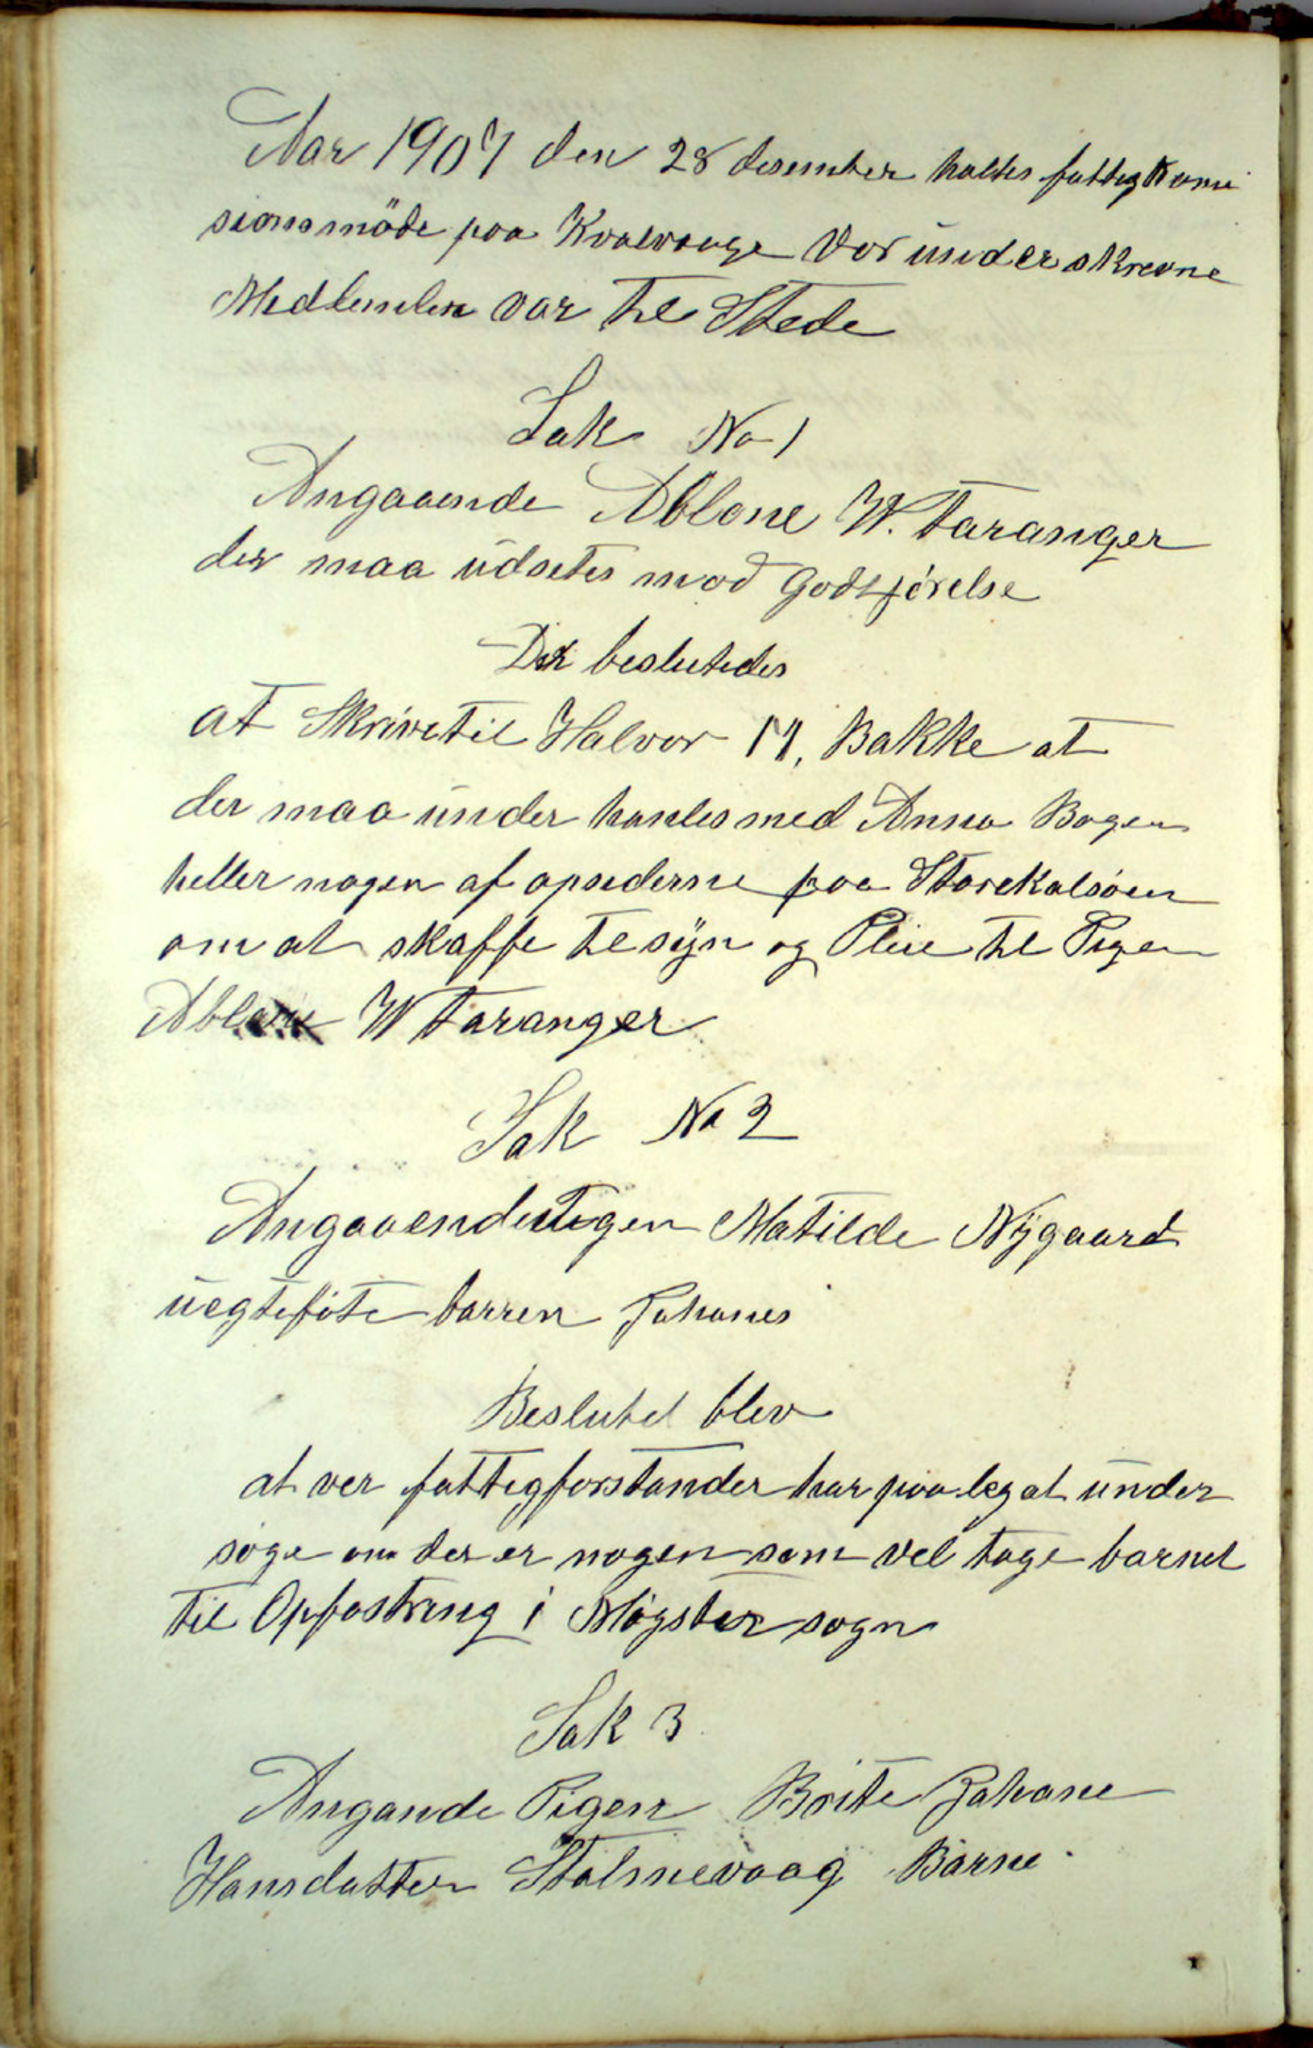 Aar 1907 den 28 desember haltes fattigkomi
sionsmöde paa Kvalvaage Vor underskrevne
Medlemler var til Stede
Sak No 1
Angaaende Ablone W. Taranger
der maa udsetes mod Godtjörelse
Der beslutedes
at Skrive til Halvor M. Bakke at
der maa under hanles med Anna Bogen
heller nogen af opsederne paa Storekalsöen
om at skaffe tesyn og Pleie til Pigen
Ablone W Taranger
Sak No 2
Angaaende Pigen Matilde Nygaard
uegteföte barren Johanes
Beslutet blev
at ver fattigforstander har paaleg at under
söge om der er nogen som vel tage barnet
til Opfostring i Mögster sogn
Sak 3
Angande Pigen Brite Johane
Hansdatter Stolmevaag Barne